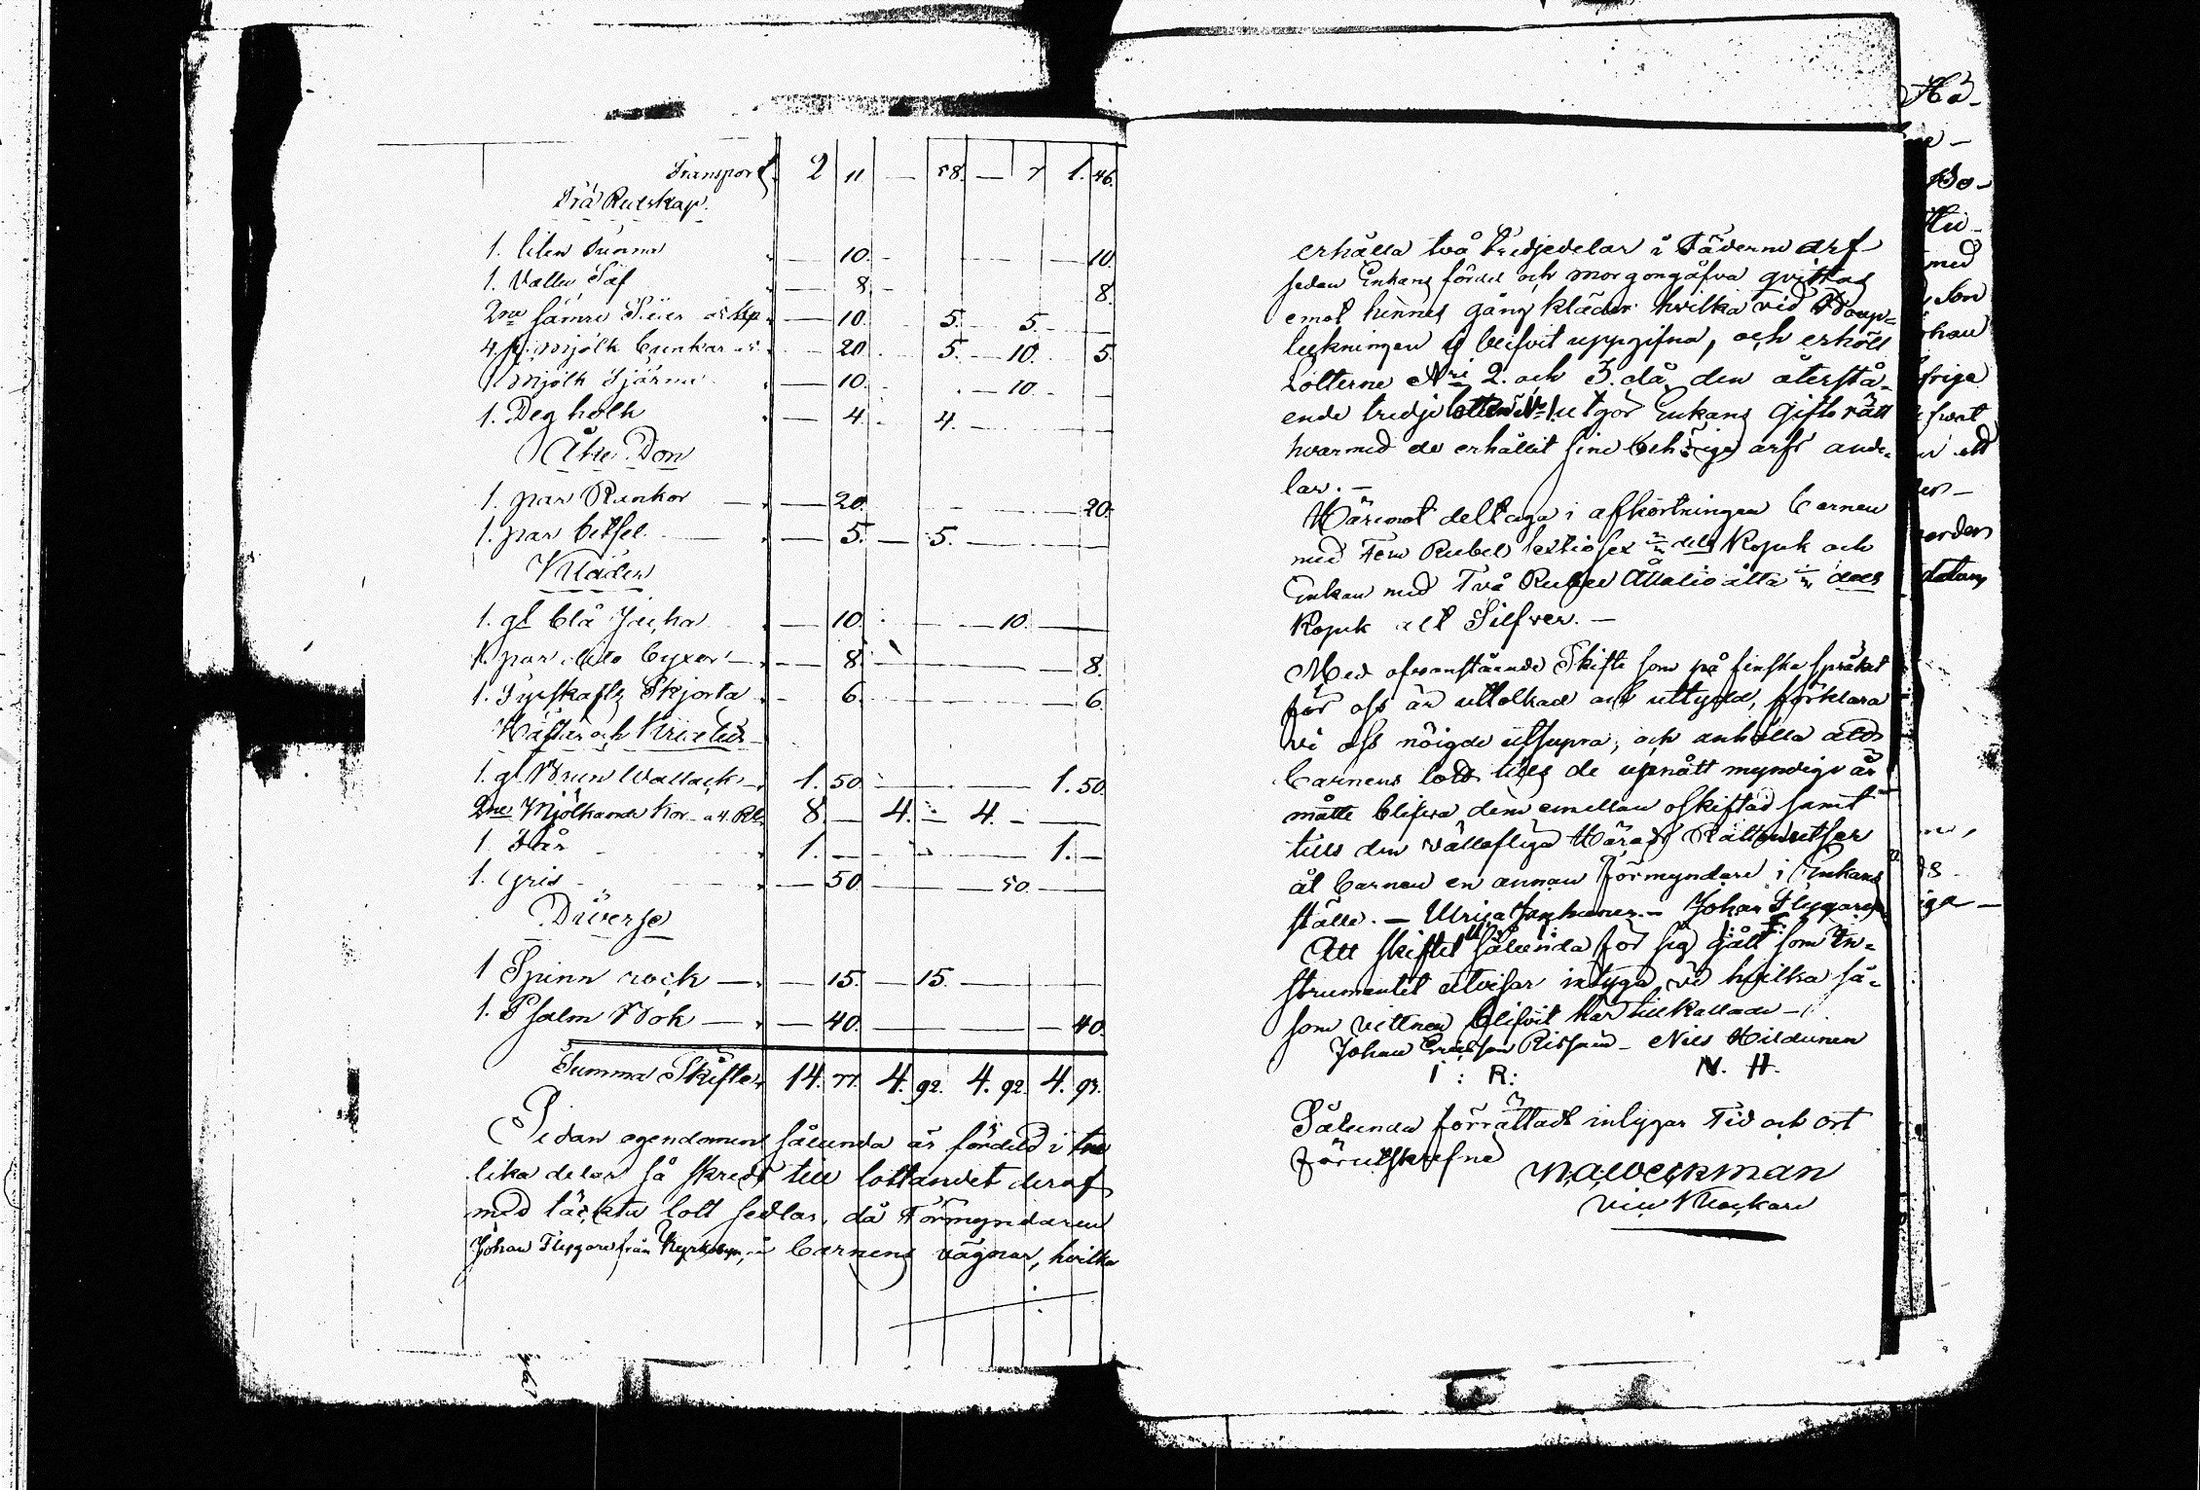 Transport 2 11 — 58. — 7 1. 46.
Trä Redskap.
1. liten Tunna — 10. — — 10.
1. Vatten Såf — 8 — 8.
2ne sämre Såar a 5 kp — 10. 5. 5. —
4 st. mjölk bunkar a 5 — 20. 5. 10. 5.
1 Mjölk Tjärna — 10. — 10. —
1. Deg holk — 4. 4. —
Åke Don
1. par Runkor — 20. — 20.
1. par betsel — 5. — 5. —
Kläder
1. gl blå Jacka — 10. — 10. —
1. par dito byxor — 8. — 8.
1. Tyskaftz Skjorta — 6. — 6.
Hästar och Kreatur
1. gl Brun Wallack 1. 50. — 1. 50.
2ne Mjölkande Kor a 4. Rbl 8. — 4. — 4. —
1 Får 1. — 1. —
1. Gris — 50. — 50. —
Diverse
1 Spinn rock — 15. — 15. —
1. Psalm Bok — 40. — 40.
Summa Skiftes 14. 77. 4. 92. 4. 92. 4. 93.
Sedan egendomen sålunda är fördeld i tre
lika delar så skreds till lottandet deraf
med täckta lott sedlar, då Förmyndaren
Johan Flygare från Kyrkobyn, å barnens vägnar, hvilka
erhålla två tredjedelar i Fäderne arf
sedan Enkans fördel och morgongåfva qvittas
emot hennes gång kläder hvilka vid Boupp=
teckningen ej blifvit uppgifna, och erhöll
Lotterne Nri 2. och 3. då den återstå=
ende tredje lotten No 1. utgör Enkans Gifto rätt
hvarmed de erhållit sine behörige arfs ande=
lar. —
Häremot deltaga i afkortningen barnen
med Fem Rubel sextiosex dels Kopek och
Enkan med Två Rubel Åttatio åtta dels
Kopek allt Silfver. —
Med ofvanstående Skifte som på finska språket
för oss är uttolkad och uttydd, förklara
vi oss nöigde utsupra, och anhålla att
barnens lott tills de upnått myndige år
måtte blifva dem emellan oskiftad samt
tills den vällofliga Härads Rätten utser
åt barnen en annan förmyndare i Enkans
ställe. — Ulrica Johan Flygare
Att Skiftet sålunda för sig gått som In=
strumentet utvisar intyga vi hvilka så=
som vittnen blifvit här tillkallade —
Johan Ericsson Rissanen — Nils Hildunen
I: R: N. H.
Sålunda förrättadt intygar Tid och Ort
förutskrefne
Weckman
vice Klockare